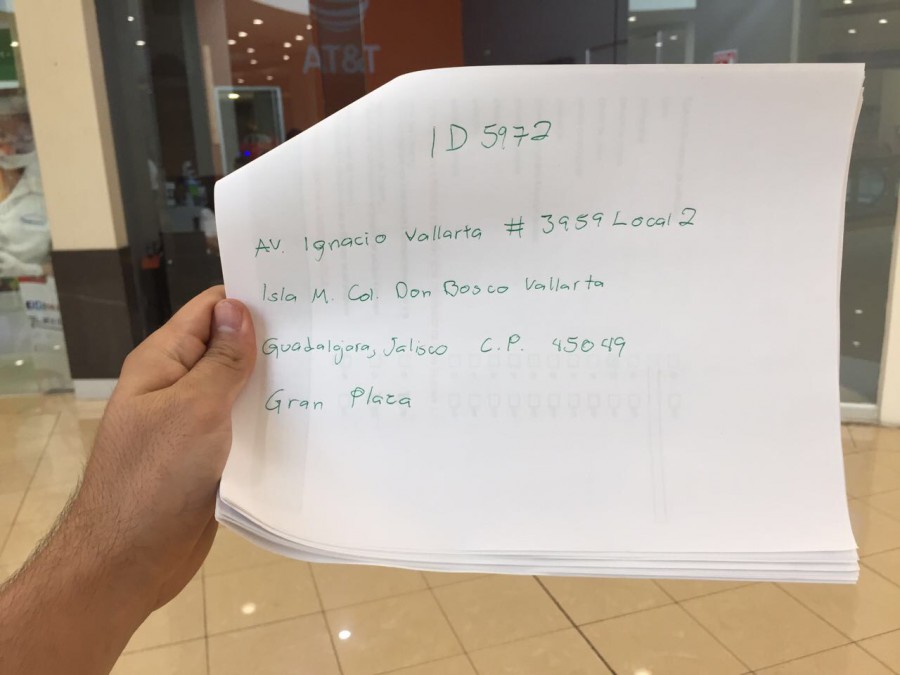 AT&T
ID 5972
AV. Ignacio Vallarta # 3959 Local 2
Isla M. Col. Don Bosco Vallarta
Guadalajara, Jalisco C.P. 45049
Gran Plaza